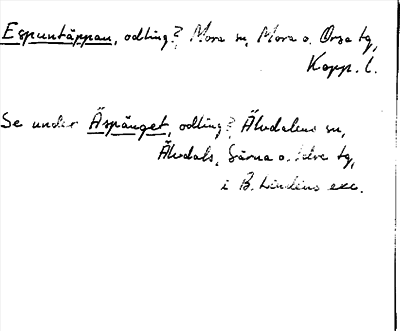 Espuntäppan, odling?, Mora sn, Mora o. Orsa tg,
Kopp. l.
Se under Äspänget, odling?, Älvdalens sn,
Älvdals, Särna o. Idre tg,
i B. Lindéns exc.